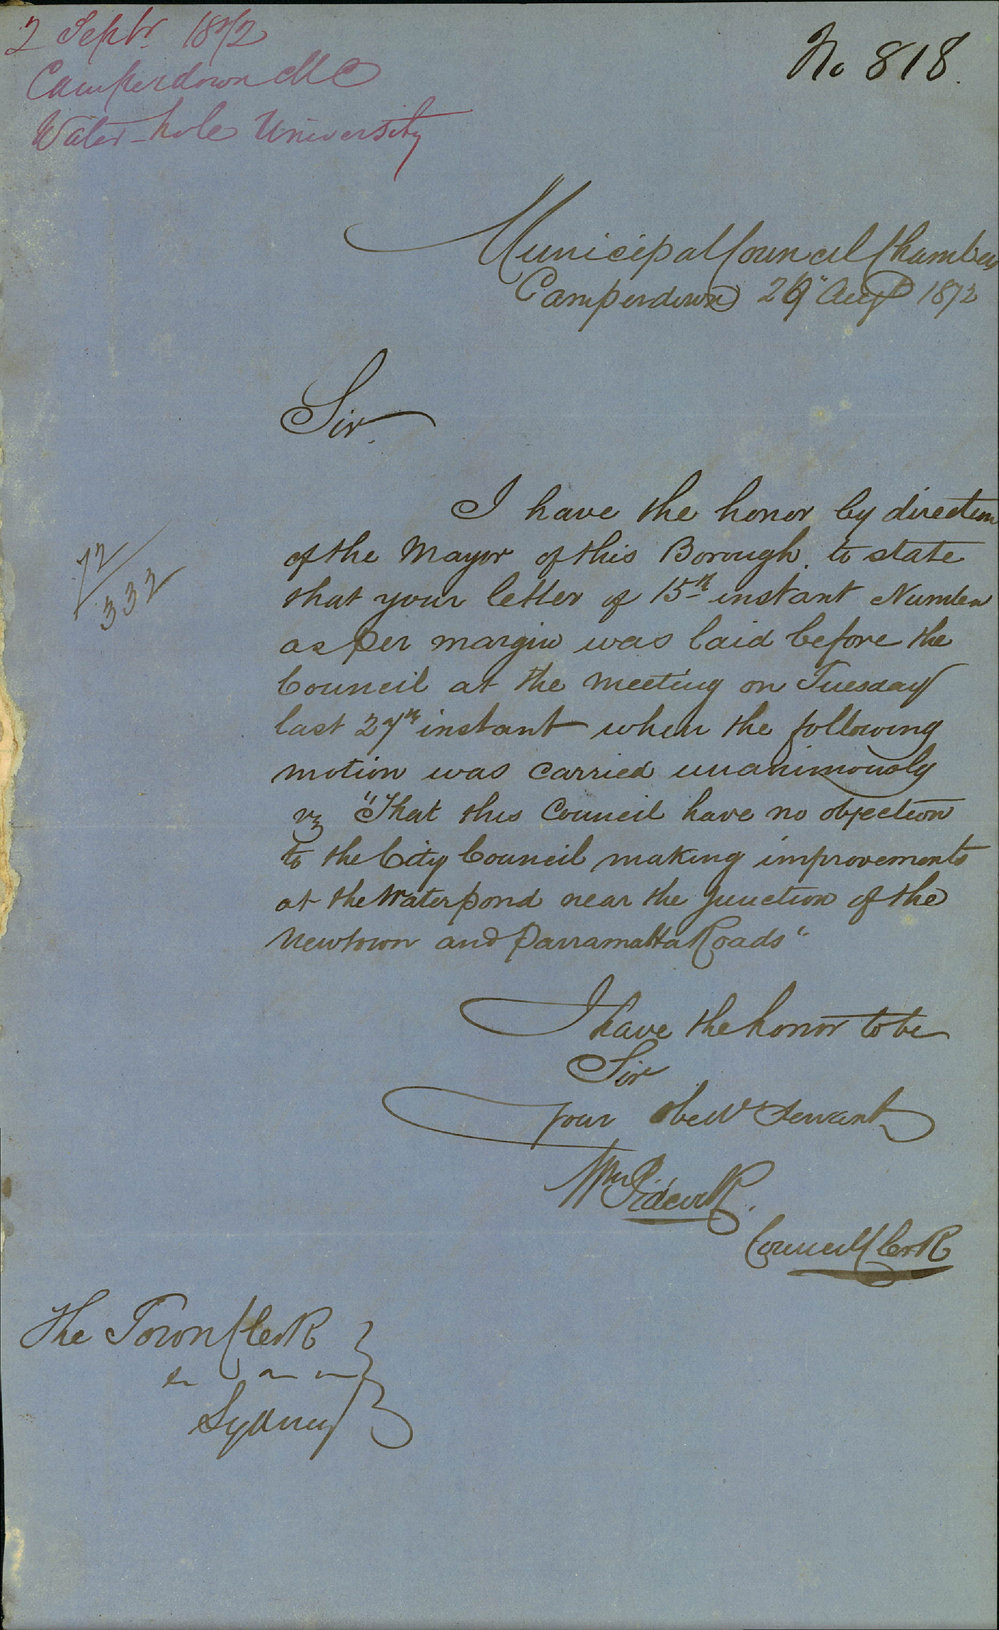 2 Septr. 1872
Camperdown M C
Water-hole University
No 818.
Municipal Council Chambers
Camperdown 29" Augt 1872
Sir.
I have the honor by direction
of the Mayor of this Borough. to state
that your letter of 15th instant Number
72/332
as per margin was laid before the
Council at the meeting on Tuesday
last 27th instant when the following
motion was carried unanimously
viz "That this Council have no objection
to the City Council making improvements
at the Waterpond near the Junction of the
Newtown and Parramatta Roads"
I have the honor to be
Sir
Your Obedt Servant
Wm
Council Clerk
The Town Clerk
Sydney